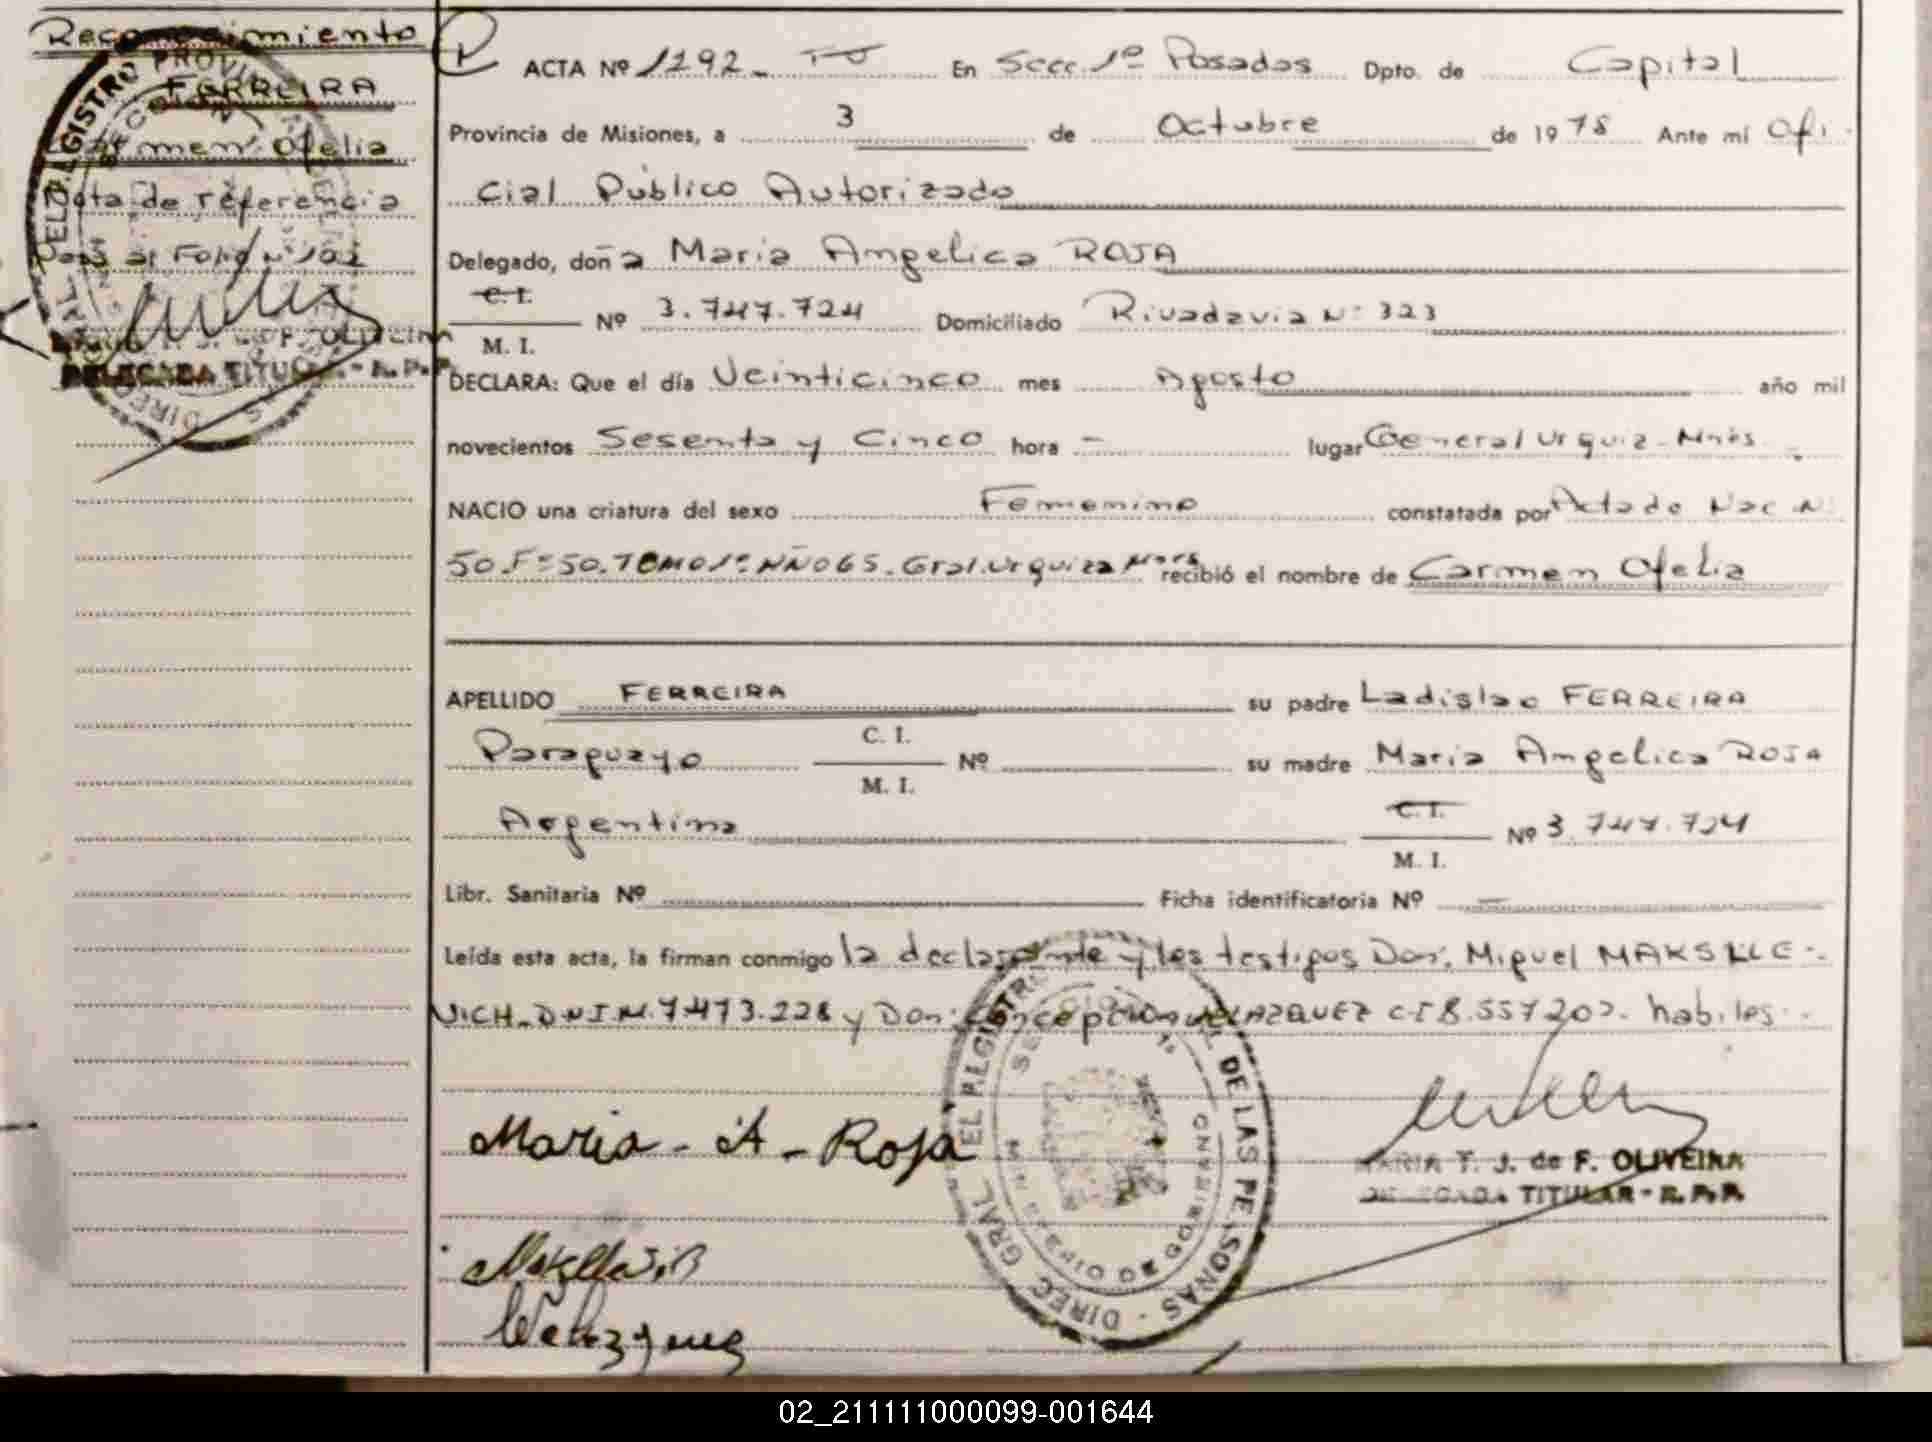 Reconocimiento
FERREIRA
Carmen Ofelia
Nota de referencia
Pasa al Folio Nº 102
DELEGADA TITULAR - R.P.P.
ACTA Nº 1292 En Secc. 1º Posadas Dpto. de Capital
Provincia de Misiones, a 3 de Octubre de 1978 Ante mi Ofi-
cial Público Autorizado
Delegado, doña Maria Angelica ROJA
C. I.
M. I. Nº 3.747.724 Domiciliado Rivadavia Nº 323
DECLARA: Que el día Veinticinco mes Agosto año mil
novecientos Sesenta y Cinco hora - lugar General Urquiz - Mnes.
NACIO una criatura del sexo Femenino constatada por Acta de Nac Nº
50. Fº 50. TOMO 1º AÑO 65. Gral. Urquiza Mnes recibió el nombre de Carmen Ofelia
APELLIDO FERREIRA su padre Ladislao FERREIRA
Paraguayo C. I. M. I. Nº su madre Maria Angelica ROJA
Argentina C. I. M. I. Nº 3.747.724
Libr. Sanitaria Nº Ficha identificatoria Nº -
Leída esta acta, la firman conmigo la declarante y los testigos Don: Miguel MAKSILLE-
VICH. DNI Nº 7.473.228 y Don: Concepcion VELAZQUEZ C-I 8.557207. habiles.
Maria - A - Roja
MARIA T. J. de F. OLIVEIRA
DELEGADA TITULAR - R.P.P.
Velazquez
DIREC. GRAL. DEL REGISTRO DE LAS PERSONAS
02_211111000099-001644